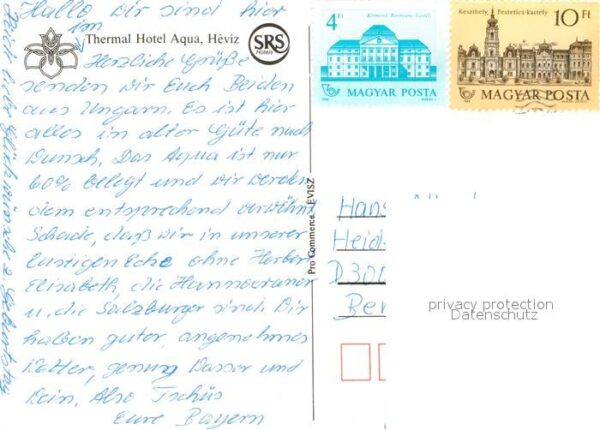 Hallo wir sind hier
im
Thermal Hotel Aqua, Héviz
SRS
Herzliche Grüße
senden wir Euch Beiden
aus Ungarn. Es ist hier
alles in alter Güte nach
Wunsch. Das Aqua ist nur
60% belegt und wir werden
dem entsprechend verwöhnt
Schade, daß wir in unserer
lustigen Ecke ohne Herbert
Elisabeth, die Hannoveraner
u. die Salzburger sind. Wir
haben guter, angenehmes
Wetter, genug Wasser und
Wein. Also Tschüs
Eure Bayern
Glückwünsche z. Geburtstag
Pro Commerce · HÉVÍZ
4 Ft
MAGYAR POSTA
Keszthely, Festetics-kastély
10 Ft
MAGYAR POSTA
Hans
Heid
D301
Ber
privacy protection
Datenschutz